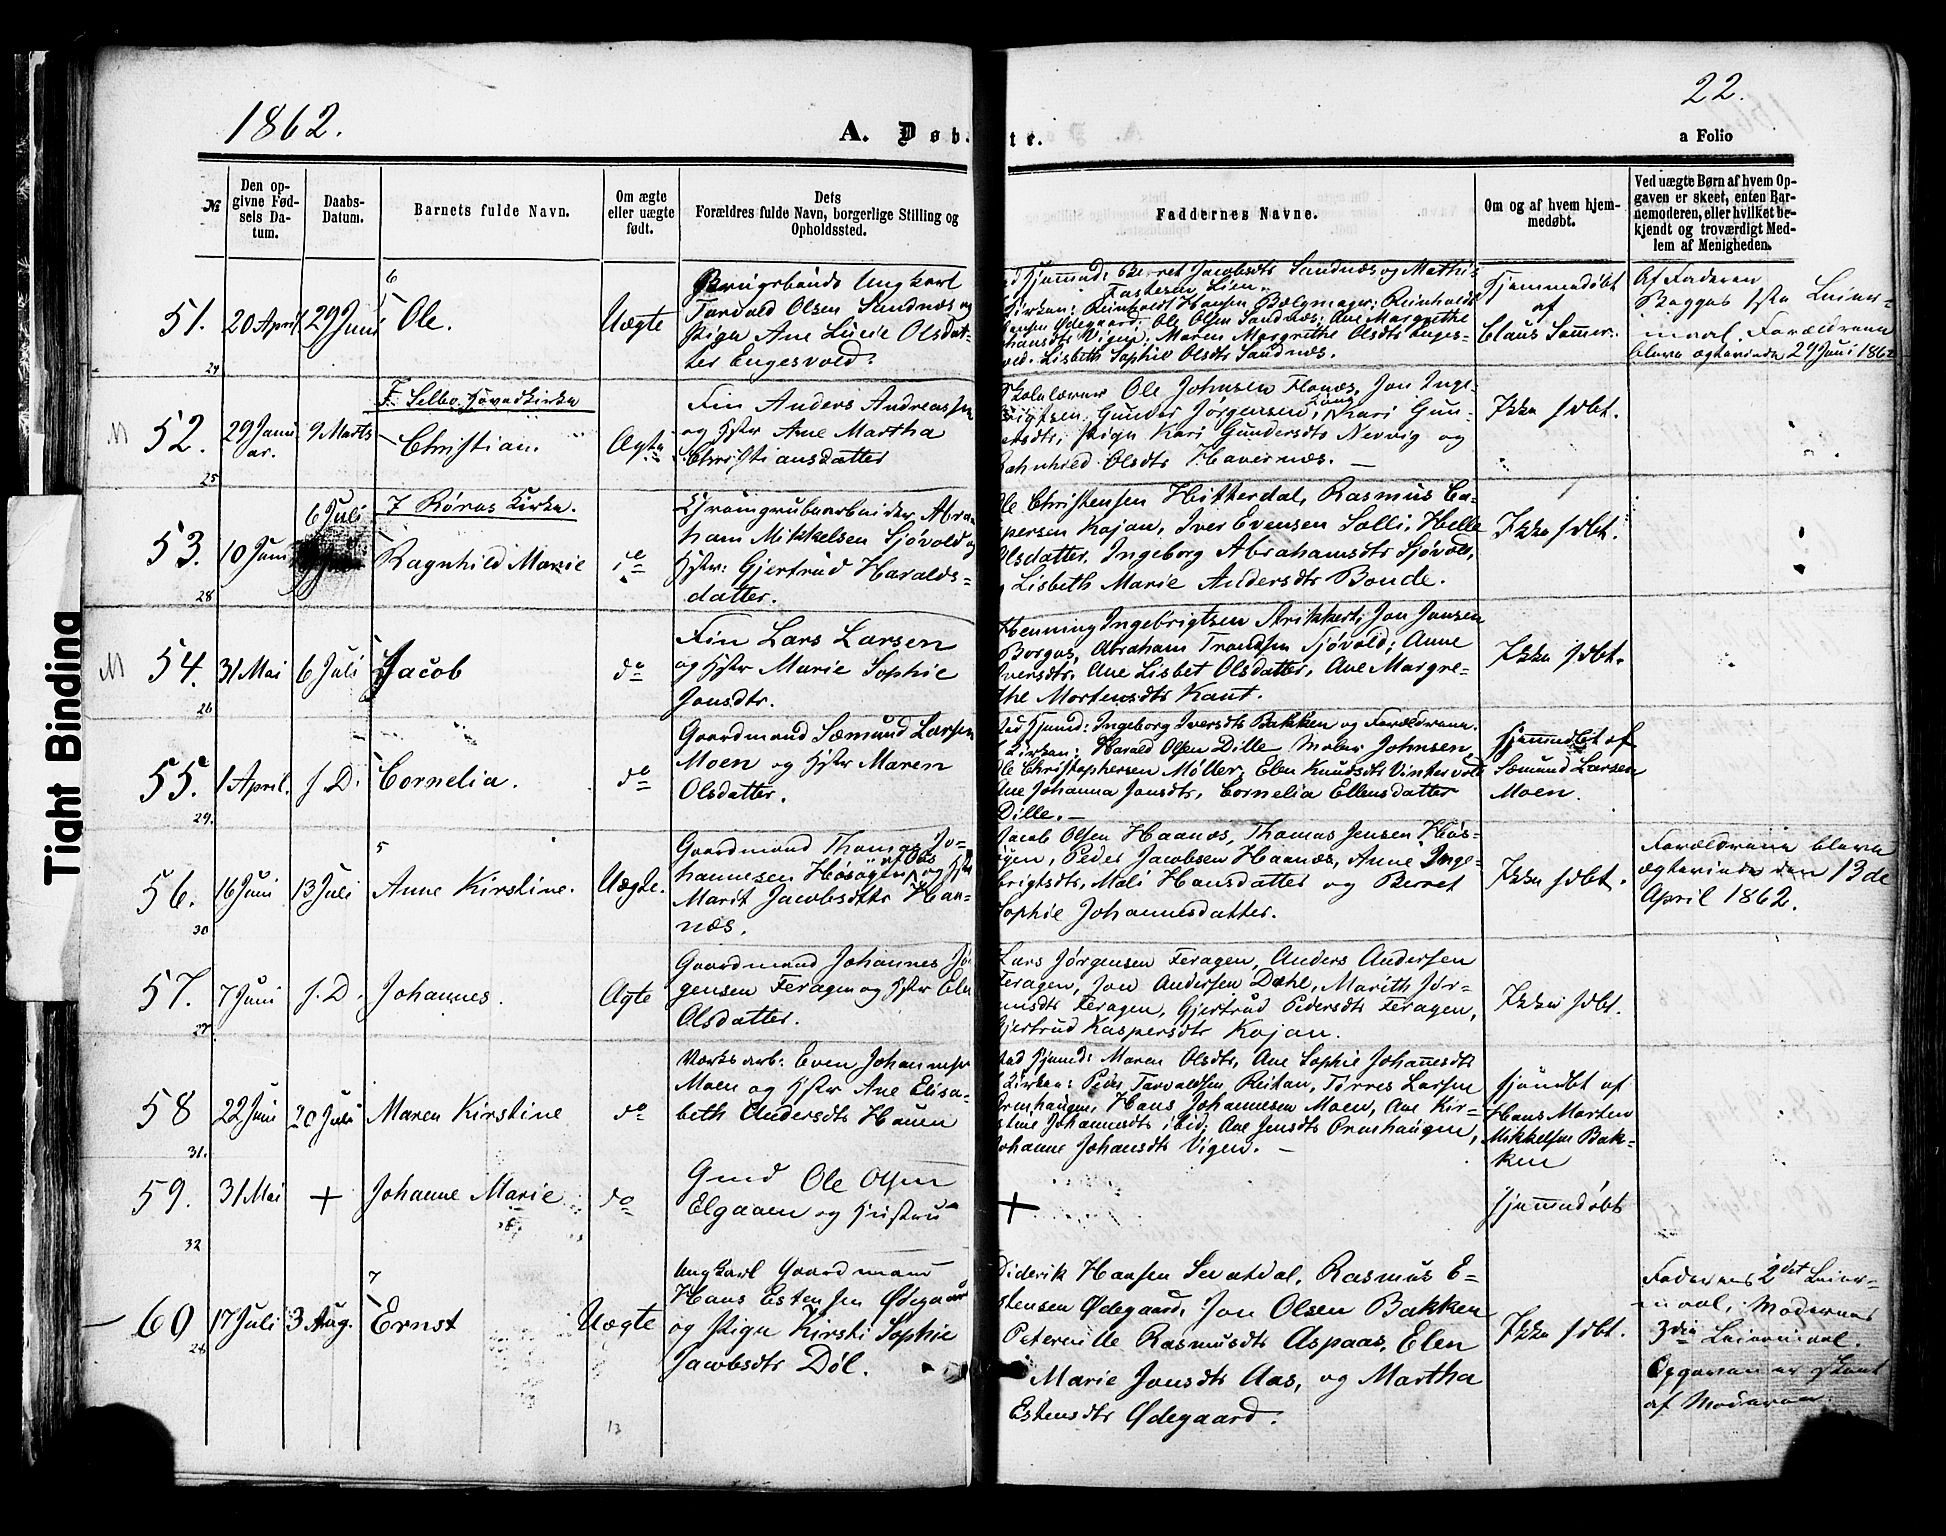 1862.
22.
A. Døb
te.
a Folio
№
Den op-
givne Fød-
sels Da-
tum.
Daabs-
Datum.
Barnets fulde Navn.
Om ægte
eller uægte
født.
Dets
Forældres fulde Navn, borgerlige Stilling og
Opholdssted.
Faddernes Navne.
Om og af hvem hjem-
medøbt.
Ved uægte Børn af hvem Op-
gaven er skeet, enten Bar-
nemoderen, eller hvilket be-
kjendt og troværdigt Med-
lem af Menigheden.
51.
20 April
29 Juni
6
Ole.
Uægte
Ungkarl
Torvald Olsen Sandnæs og
Pige Ane Lucie Olsdat-
ter Engesvold.
Hjemmed: Berret Jacobsdtr Sandnæs og Mathi-
Fastesen Lien.
Kirken: Reinholdt Hansen Bælgmager; Reinholdt
Jensen Ødegaard; Ole Olsen Sandnæs; Ane Margrethe
Vigen; Maren Margrethe Olsdtr Enges-
vold. Lisbeth Sophie Olsdtr Sandnæs.
Hjemmedøbt
af
Claus
Af Faderen
Begges 1ste Leier-
maal. Forældrene
bleve ægteviede 29 Juni 1862
24
M
52.
29 Janu
ar.
9 Marts
F. Selbo Hovedkirke
Christian.
Ægte
Fin Anders Andreassen
og Hstr Ane Martha
Christiansdatter
Skolelærer Ole Johnsen Flonæs, Jon Inge-
brigtsen, Gunder Jørgensen, Kari Gun-
dersdtr; Pige Kari Gundersdtr Nervig og
Olsdtr Havernæs.
Ikke hdbt.
25
53.
10 Juni
6 Juli
7 Røros Kirke.
Ragnhild Marie
do
Chromgrubearbeider Abra-
ham Mikkelsen Sjøvold og
Hstr: Gjertrud Haralds-
datter.
Ole Christensen Hitterdal, Rasmus Ca-
spersen Kojan, Iver Evensen Solli, Helle
Olsdatter, Ingeborg Abrahamsdtr Sjøvold,
og Lisbeth Marie Andersdtr Bonde.
Ikke hdbt.
28
M
54.
31 Mai
6 Juli
Jacob
do
Fin Lars Larsen
og Hstr Marie Sophie
Jonsdtr.
Henning Ingebrigtsen Jon Jonsen
Borgos, Abraham Trondsen Sjøvold; Anne
Iversdtr, Ane Lisbet Olsdatter, Ane Margre-
the Mortensdtr Kant.
Ikke hdbt.
26
55.
1 April.
s. D.
Cornelia.
do
Gaardmand Sæmund Larsen
Moen og Hstr Maren
Olsdatter.
Ved Hjemd: Ingeborg Iversdtr Bakken og Forældrene.
I Kirken: Harald Olsen Dille, Johnsen,
Ole Christophersen Møller; Elen Knudsdtr Vintervold
Ane Johanna Jonsdtr, Cornelia Ellensdatter
Dille.
Hjemmdbt af
Sæmund Larsen
Moen.
29.
56.
16 Juni
13 Juli
5
Anne Kirstine.
Uægte.
Gaardmand Thomas Jo-
hannesen Høsøgen og
Marit Jacobsdtr Haa-
næs.
Jacob Olsen Haanæs, Thomas Jensen Høs-
øgen, Peder Jacobsen Haanæs, Anne Inge-
brigtsdtr, Mali Hansdatter og Beret
Sophie Johannesdatter.
Ikke hdbt.
Forældrene bleve
ægteviede den 13de
April 1862.
30
57.
7 Juni
s. D.
Johannes.
Ægte
Gaardmand Johannes Jør-
gensen Feragen og Hstr Elen
Olsdatter.
Lars Jørgensen Feragen, Anders Andersen
Feragen, Jon Andersen Dæhl, Marith Jør-
gensdtr Feragen, Gjertrud Pedersdtr Feragen,
Gjertrud Kaspersdtr Kojan.
Ikke hdbt.
27
58
22 Juni
20 Juli
Maren Kirstine
do
Værks arb: Even Johannesen
Moen og Hstr Ane Elisa-
beth Andersdtr Hauen
Ved Hjemd: Maren Olsdtr, Ane Sophie Johannesdtr
I Kirken: Peder Torvaldsen Reitan, Tørres Larsen
Ormhaugen, Hans Johannesen Moen, Ane Kir-
stine Johannesdtr ibid; Ane Jensdtr Ormhaugen,
Johanne Johansdtr Vigen.
Hjemdbt af
Hans Morten
Mikkelsen Bak-
ken
31.
59.
31 Mai
+
Johanne Marie
do
Gmd Ole Olsen
Elgaaen og Hustru
+
Hjemmedøbt
32
60
17 Juli
3 Aug.
7
Ernst
Uægte
Ungkarl Gaardmand
Hans Estensen Ødegaard
og Pige Kirsti Sophie
Jacobsdtr Døl.
Diderik Hansen Sevatdal, Rasmus E-
stensen Ødegaard, Jon Olsen Bakken
Peternille Rasmusdtr Aspaas, Elen
Marie Jonsdtr Aas, og Martha
Estensdtr Ødegaard.
Ikke hdbt.
Faderens 2det Leier-
maal, Moderens
3die Leiermaal.
Opgaven er skeet
af Moderen.
28
13
Tight Binding